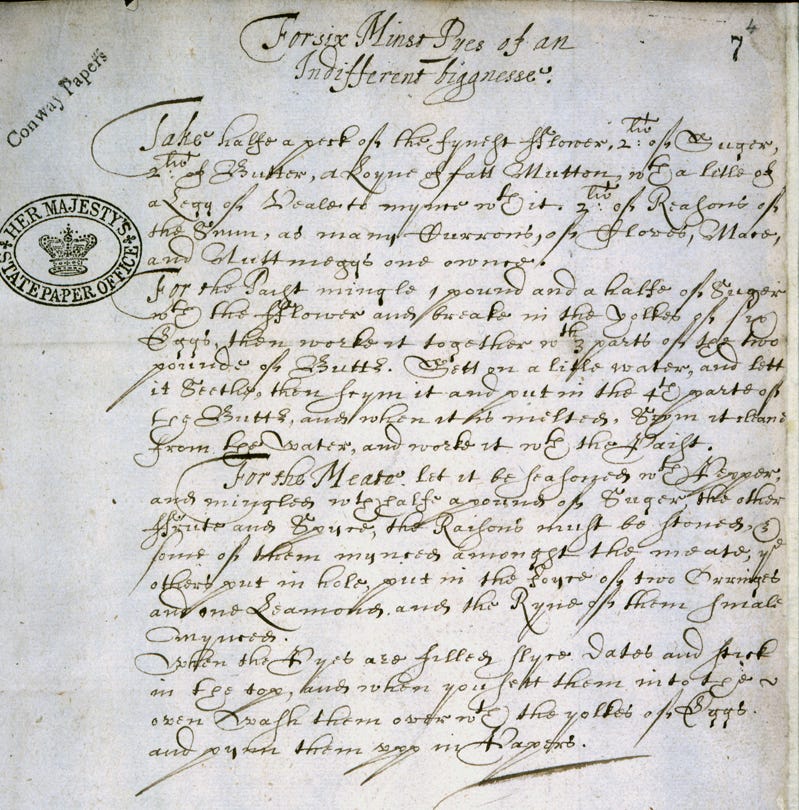 For six Minst Pyes of an
Indifferent biggnesse.
4
7
Conway Papers
HER MAJESTY'S STATE PAPER OFFICE
Take halfe a peck of the fynest fflower, 2li: of Suger,
2li: of Butter, a Loyne of fatt Mutton, wth a litle of
a Legg of Veale to mynce wth it. 2li: of Reasons of
the Sunn, as many Currons, of Cloves, Mace,
and Nuttmeggs one ownce.
For the Paist mingle 1 pound and a halfe of Suger
wth the fflower and breake in the yolkes of six
Eggs, then worke it together wth 3 parts of the two
pounds of Butter. Sett on a litle water, and lett
it Seethe, then scym it and put in the 4th parte of
the Butter, and when it is melted, Scym it cleane
from the water, and worke it wth the Paist.
For the Meate. let it be seasoned wth Pepper,
and mingled wth halfe a pound of Suger, the other
ffrute and Spyce, the Raisons must be stoned, &
some of them mynced amongst the meate, ye
others put in hole, put in the Joyce of two Orringes
and one Leamond, and the Ryne of them smale
mynced.
When the Pyes are filled slyce dates and stick
in the top, and when you sett them into the
oven Wash them over wth the yolkes of Eggs.
and pynn them upp in Papers.